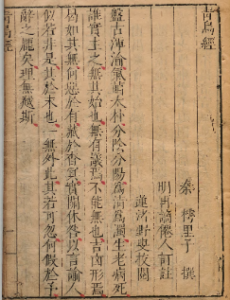 青烏經
秦 樗里子 撰
明 僊人訂註
蓮渚野叟校閱
盤古渾淪氣萌太朴分陰分陽為清為濁生老病死
誰實主之無其始也無有議焉不能無也吉凶形焉
曷如其無何惡於有藏於杳冥實關休咎以言諭人
似若非是其於末也一無外此其若可忽何假於予
辭之龐矣理無越斯
青烏經